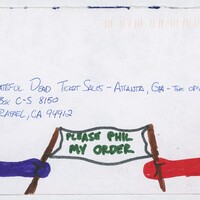 ATEFUL DEAD TICKET SALES - ATLANTA, GA - THE OM
BOX C-S 8150
RAFAEL, CA 94912
PLEASE PHIL
MY ORDER